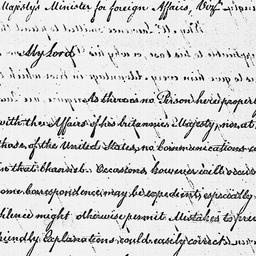 Majesty's Minister for foreign Affairs,
My Lord
As there is no Person here properly
with the Affairs of his britannic Majesty, nor at
those of the United States, no communications c
in that channel. Occasions however will occur
ome correspondence may be expedient, especially
silence might otherwise permit Mistakes to pre
friendly explanations could easily correct.